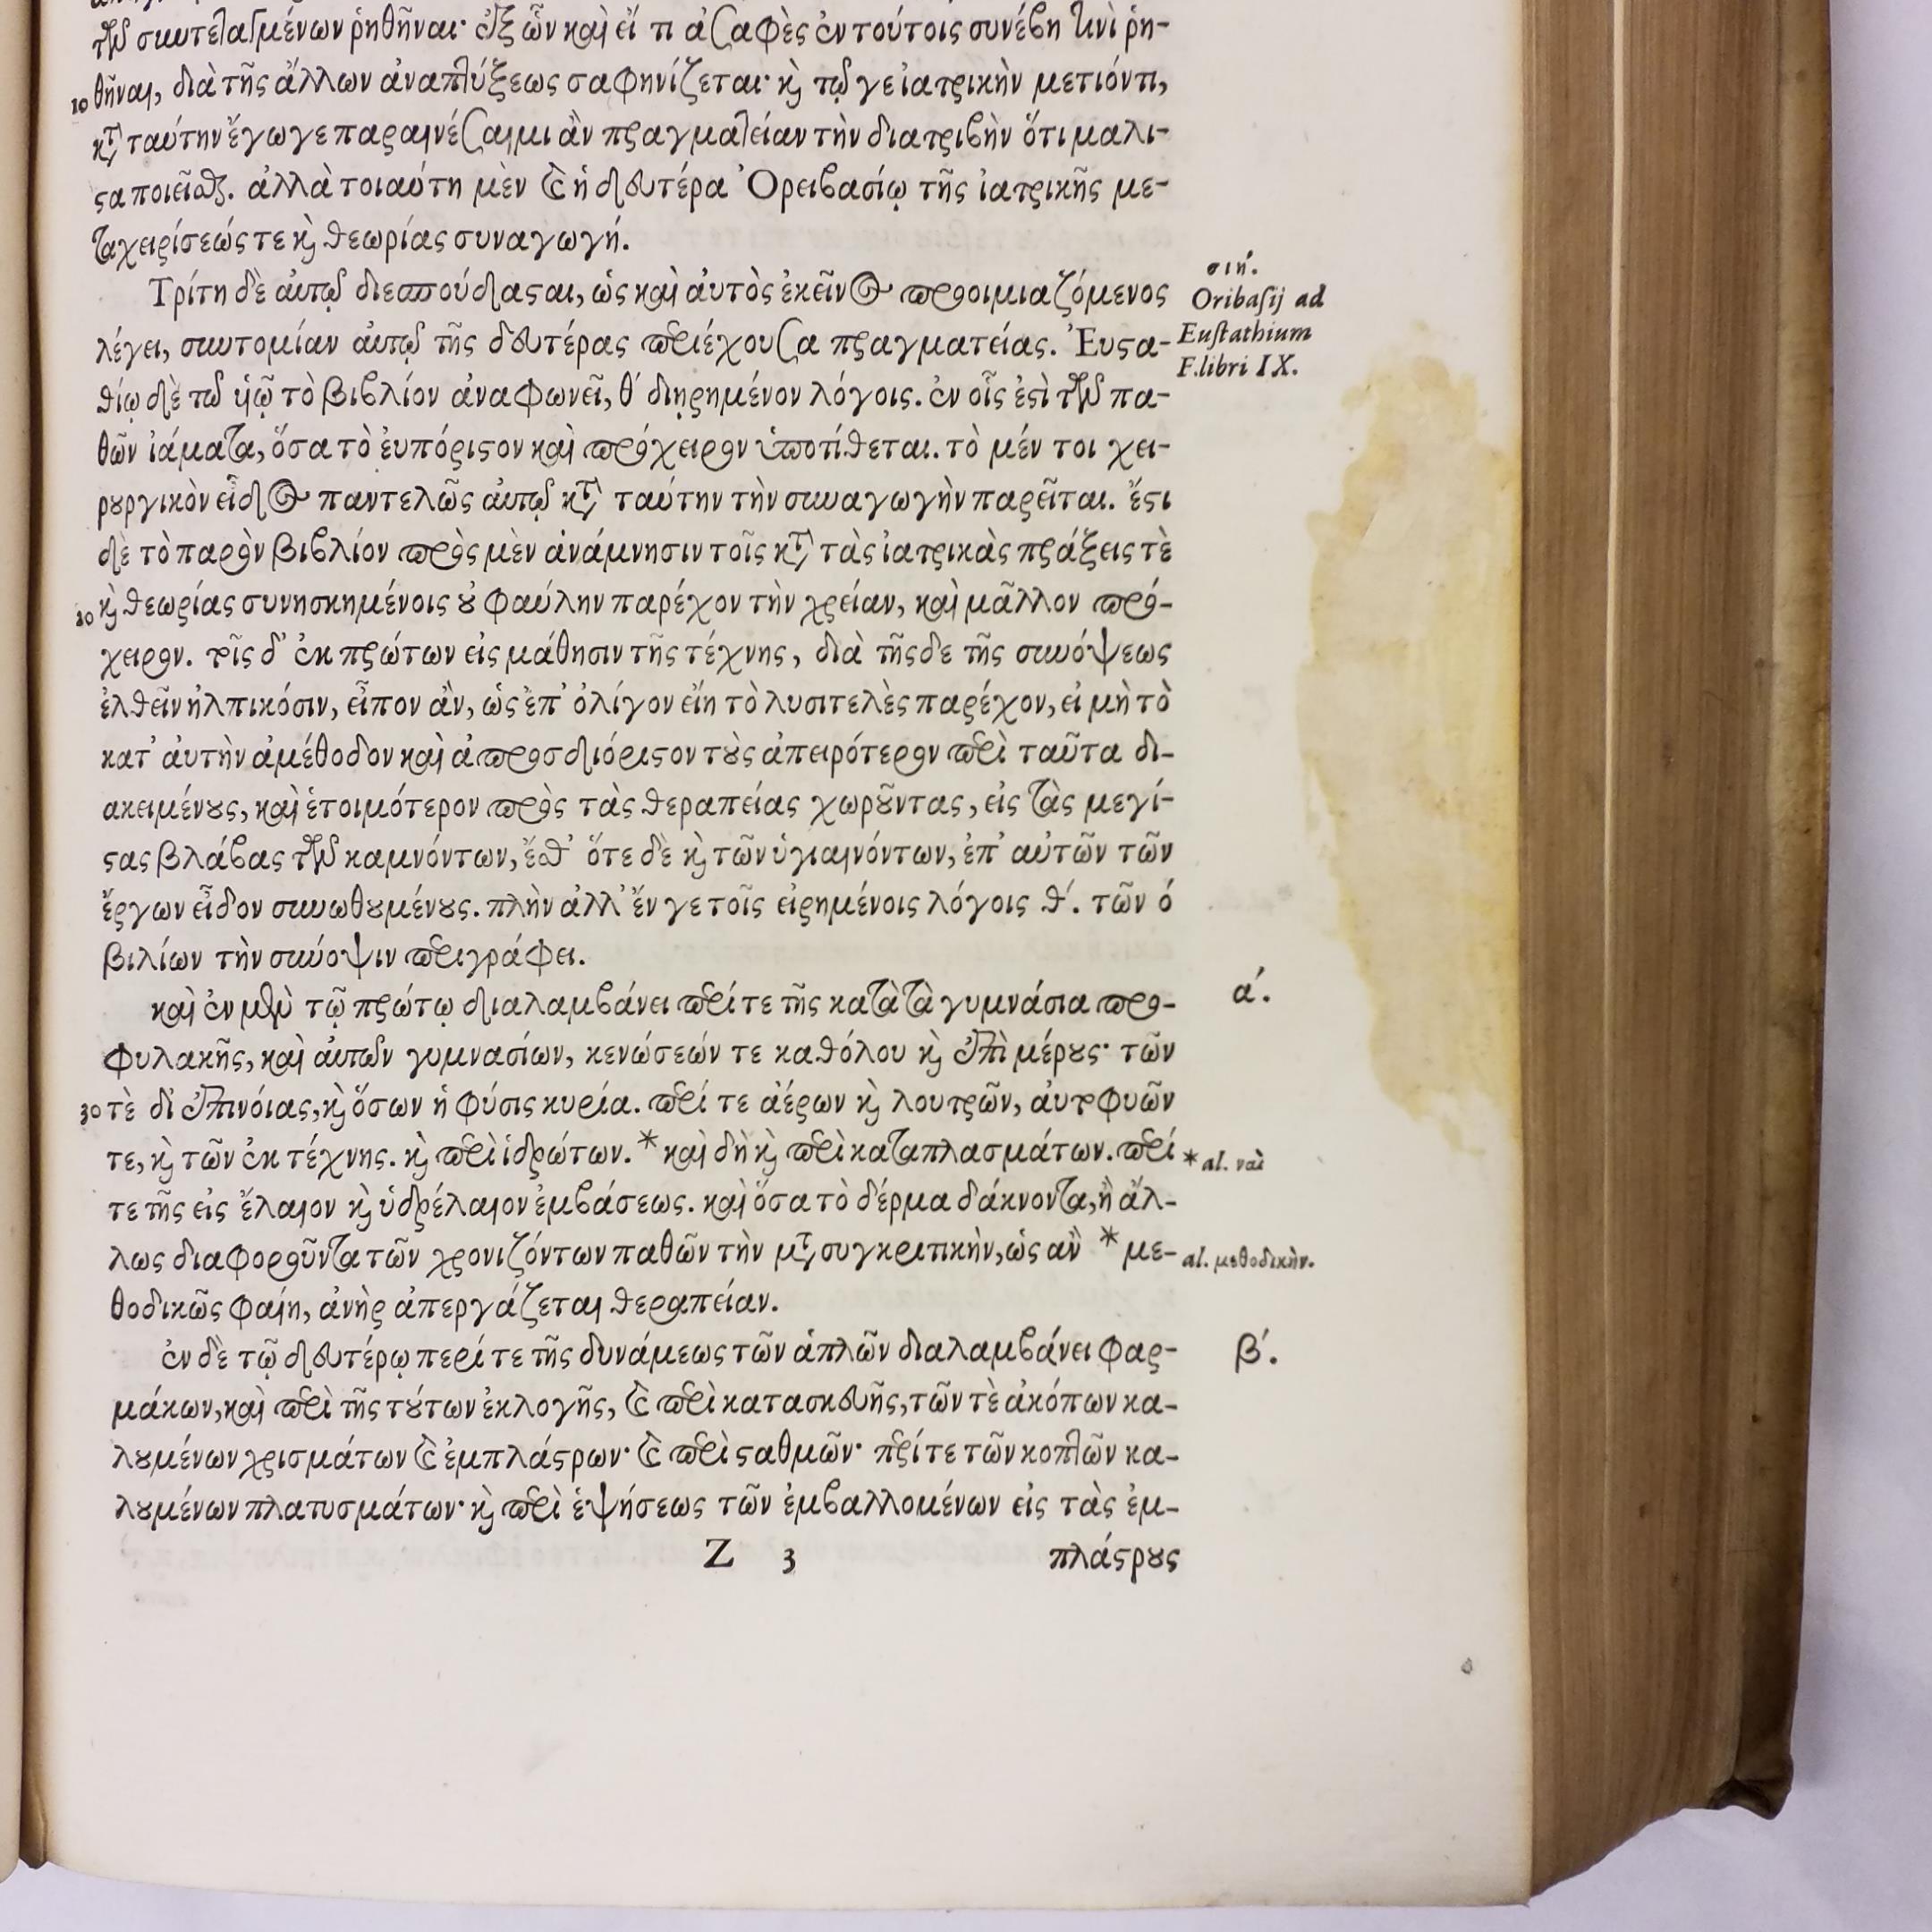 τῶν συντεταγμένων ῥηθῆναι· ἐξ ὧν καὶ εἴ τι ἀσαφὲς ἐν τούτοις συνέβη τινὶ ῥη-
10 θῆναι, διὰ τῆς ἄλλων ἀναπτύξεως σαφηνίζεται· καὶ τῷ γε ἰατρικὴν μετιόντι,
κατὰ ταύτην ἔγωγε παραινέσαιμι ἂν πραγματείαν τὴν διατριβὴν ὅτι μαλι-
στα ποιεῖσθαι. ἀλλὰ τοιαύτη μὲν καὶ ἡ δευτέρα Ὀρειβασίῳ τῆς ἰατρικῆς με-
ταχειρίσεώς τε καὶ θεωρίας συναγωγή.
Τρίτη δὲ ἀυτῷ διεσπούδασαι, ὡς καὶ ἀυτὸς ἐκεῖνος προοιμιαζόμενος
λέγει, συντομίαν ἀυτῷ τῆς δευτέρας περιέχουσα πραγματείας. Ἐυστα-
θίῳ δὲ τῷ ὑιῷ τὸ βιβλίον ἀναφωνεῖ, θ´ διῃρημένον λόγοις. ἐν οἷς ἐστὶ τῶν πα-
θῶν ἰάματα, ὅσα τὸ ἐυπόριστον καὶ πρόχειρον ὑποτίθεται. τὸ μέν τοι χει-
ρουργικὸν εἶδος παντελῶς ἀυτῷ κατὰ ταύτην τὴν συναγωγὴν παρεῖται. ἔστι
δὲ τὸ παρὸν βιβλίον πρὸς μὲν ἀνάμνησιν τοῖς κατὰ τὰς ἰατρικὰς πράξεις τὲ
20 καὶ θεωρίας συνησκημένοις οὐ φαύλην παρέχον τὴν χρείαν, καὶ μᾶλλον πρό-
χειρον. τοῖς δ' ἐκ πρώτων εἰς μάθησιν τῆς τέχνης, διὰ τῆς δε τῆς συνόψεως
ἐλθεῖν ἠλπικόσιν, εἶπον ἂν, ὡς ἐπ' ὀλίγον εἴη τὸ λυσιτελὲς παρέχον, εἰ μὴ τὸ
κατ' ἀυτὴν ἀμέθοδον καὶ ἀπροσδιόριστον τοὺς ἀπειρότερον περὶ ταῦτα δι-
ακειμένους, καὶ ἑτοιμότερον πρὸς τὰς θεραπείας χωροῦντας, εἰς τὰς μεγί-
στας βλάβας τῶν καμνόντων, ἔσθ' ὅτε δὲ καὶ τῶν ὑγιαινόντων, ἐπ' αὐτῶν τῶν
ἔργων εἶδον συνωθουμένους. πλὴν ἀλλ' ἔν γε τοῖς εἰρημένοις λόγοις θ´. τῶν ό
βιλίων τὴν σύνοψιν περιγράφει.
καὶ ἐν μὲν τῷ πρώτῳ διαλαμβάνει περί τε τῆς κατὰ τὰ γυμνάσια προ-
φυλακῆς, καὶ ἀυτῶν γυμνασίων, κενώσεών τε καθόλου καὶ ἐπὶ μέρους· τῶν
30 τὲ δι' ἐπινόιας, καὶ ὅσων ἡ φύσις κυρία. περί τε ἀέρων καὶ λουτρῶν, ἀυτοφυῶν
τε, καὶ τῶν ἐκ τέχνης. καὶ περὶ ἱδρώτων. * καὶ δὴ καὶ περὶ καταπλασμάτων. περί
τε τῆς εἰς ἔλαιον καὶ ὑδρέλαιον ἐμβάσεως. καὶ ὅσα τὸ δέρμα δάκνοντα, ἢ ἄλ-
λως διαφοροῦντα τῶν χρονιζόντων παθῶν τὴν μετασυγκριτικὴν, ὡς ἂν * με-
θοδικῶς φαίη, ἀνὴρ ἀπεργάζεται θεραπείαν.
ἐν δὲ τῷ δευτέρῳ περί τε τῆς δυνάμεως τῶν ἁπλῶν διαλαμβάνει φαρ-
μάκων, καὶ περὶ τῆς τούτων ἐκλογῆς, καὶ περὶ κατασκευῆς, τῶν τὲ ἀκόπων κα-
λουμένων χρισμάτων καὶ ἐμπλάστρων· καὶ περὶ σταθμῶν· περί τε τῶν κοπτῶν κα-
λουμένων πλατυσμάτων· καὶ περὶ ἑψήσεως τῶν ἐμβαλλομένων εἰς τὰς ἐμ-
Z 3 πλάστρους
σιή.
Oribasij ad
Eustathium
F. libri IX.
ά.
* al. ναὶ
al. μεθοδικὴν.
β´.